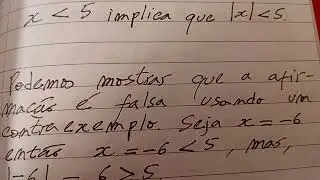 x < 5 implica que |x| < 5.
Podemos mostrar que a afir-
mação é falsa usando um
contraexemplo. Seja x = -6
então x = -6 < 5, mas,
|-6| = 6 > 5.